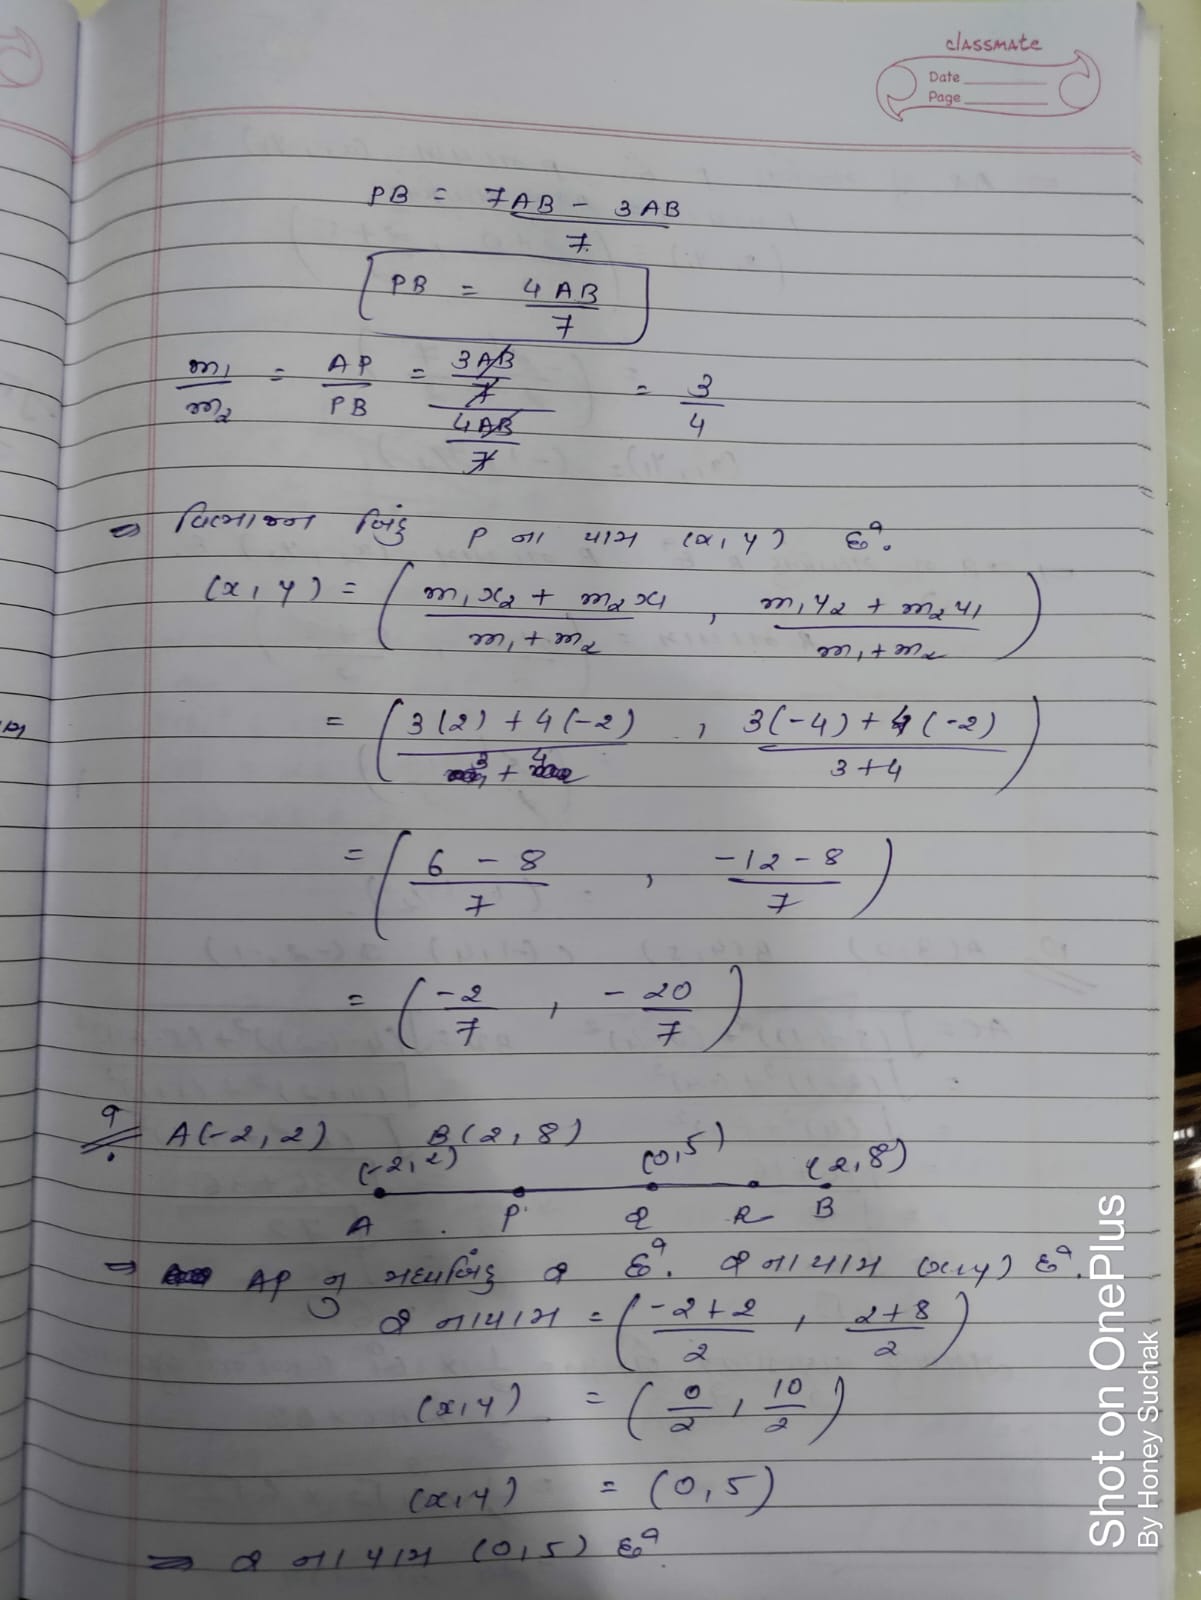 classmate
Date
Page
PB = 7AB - 3AB / 7
PB = 4AB / 7
m₁/m₂ = AP/PB = (3AB/7) / (4AB/7) = 3/4
⇒ વિભાજન બિંદુ P ના યામ (x, y) છે.
(x, y) = ( (m₁x₂ + m₂x₁)/(m₁ + m₂) , (m₁y₂ + m₂y₁)/(m₁ + m₂) )
= ( (3(2) + 4(-2))/(3 + 4) , (3(-4) + 4(-2))/(3+4) )
= ( (6 - 8)/7 , (-12 - 8)/7 )
= ( -2/7 , -20/7 )
9. A(-2, 2) B(2, 8)
(-2, 2) (0, 5) (2, 8)
A P Q R B
⇒ AP નું મધ્યબિંદુ Q છે. Q ના યામ (x, y) છે.
Q ના યામ = ( (-2+2)/2 , (2+8)/2 )
(x, y) = ( 0/2 , 10/2 )
(x, y) = (0, 5)
⇒ Q ના યામ (0, 5) છે
Shot on OnePlus
By Honey Suchak